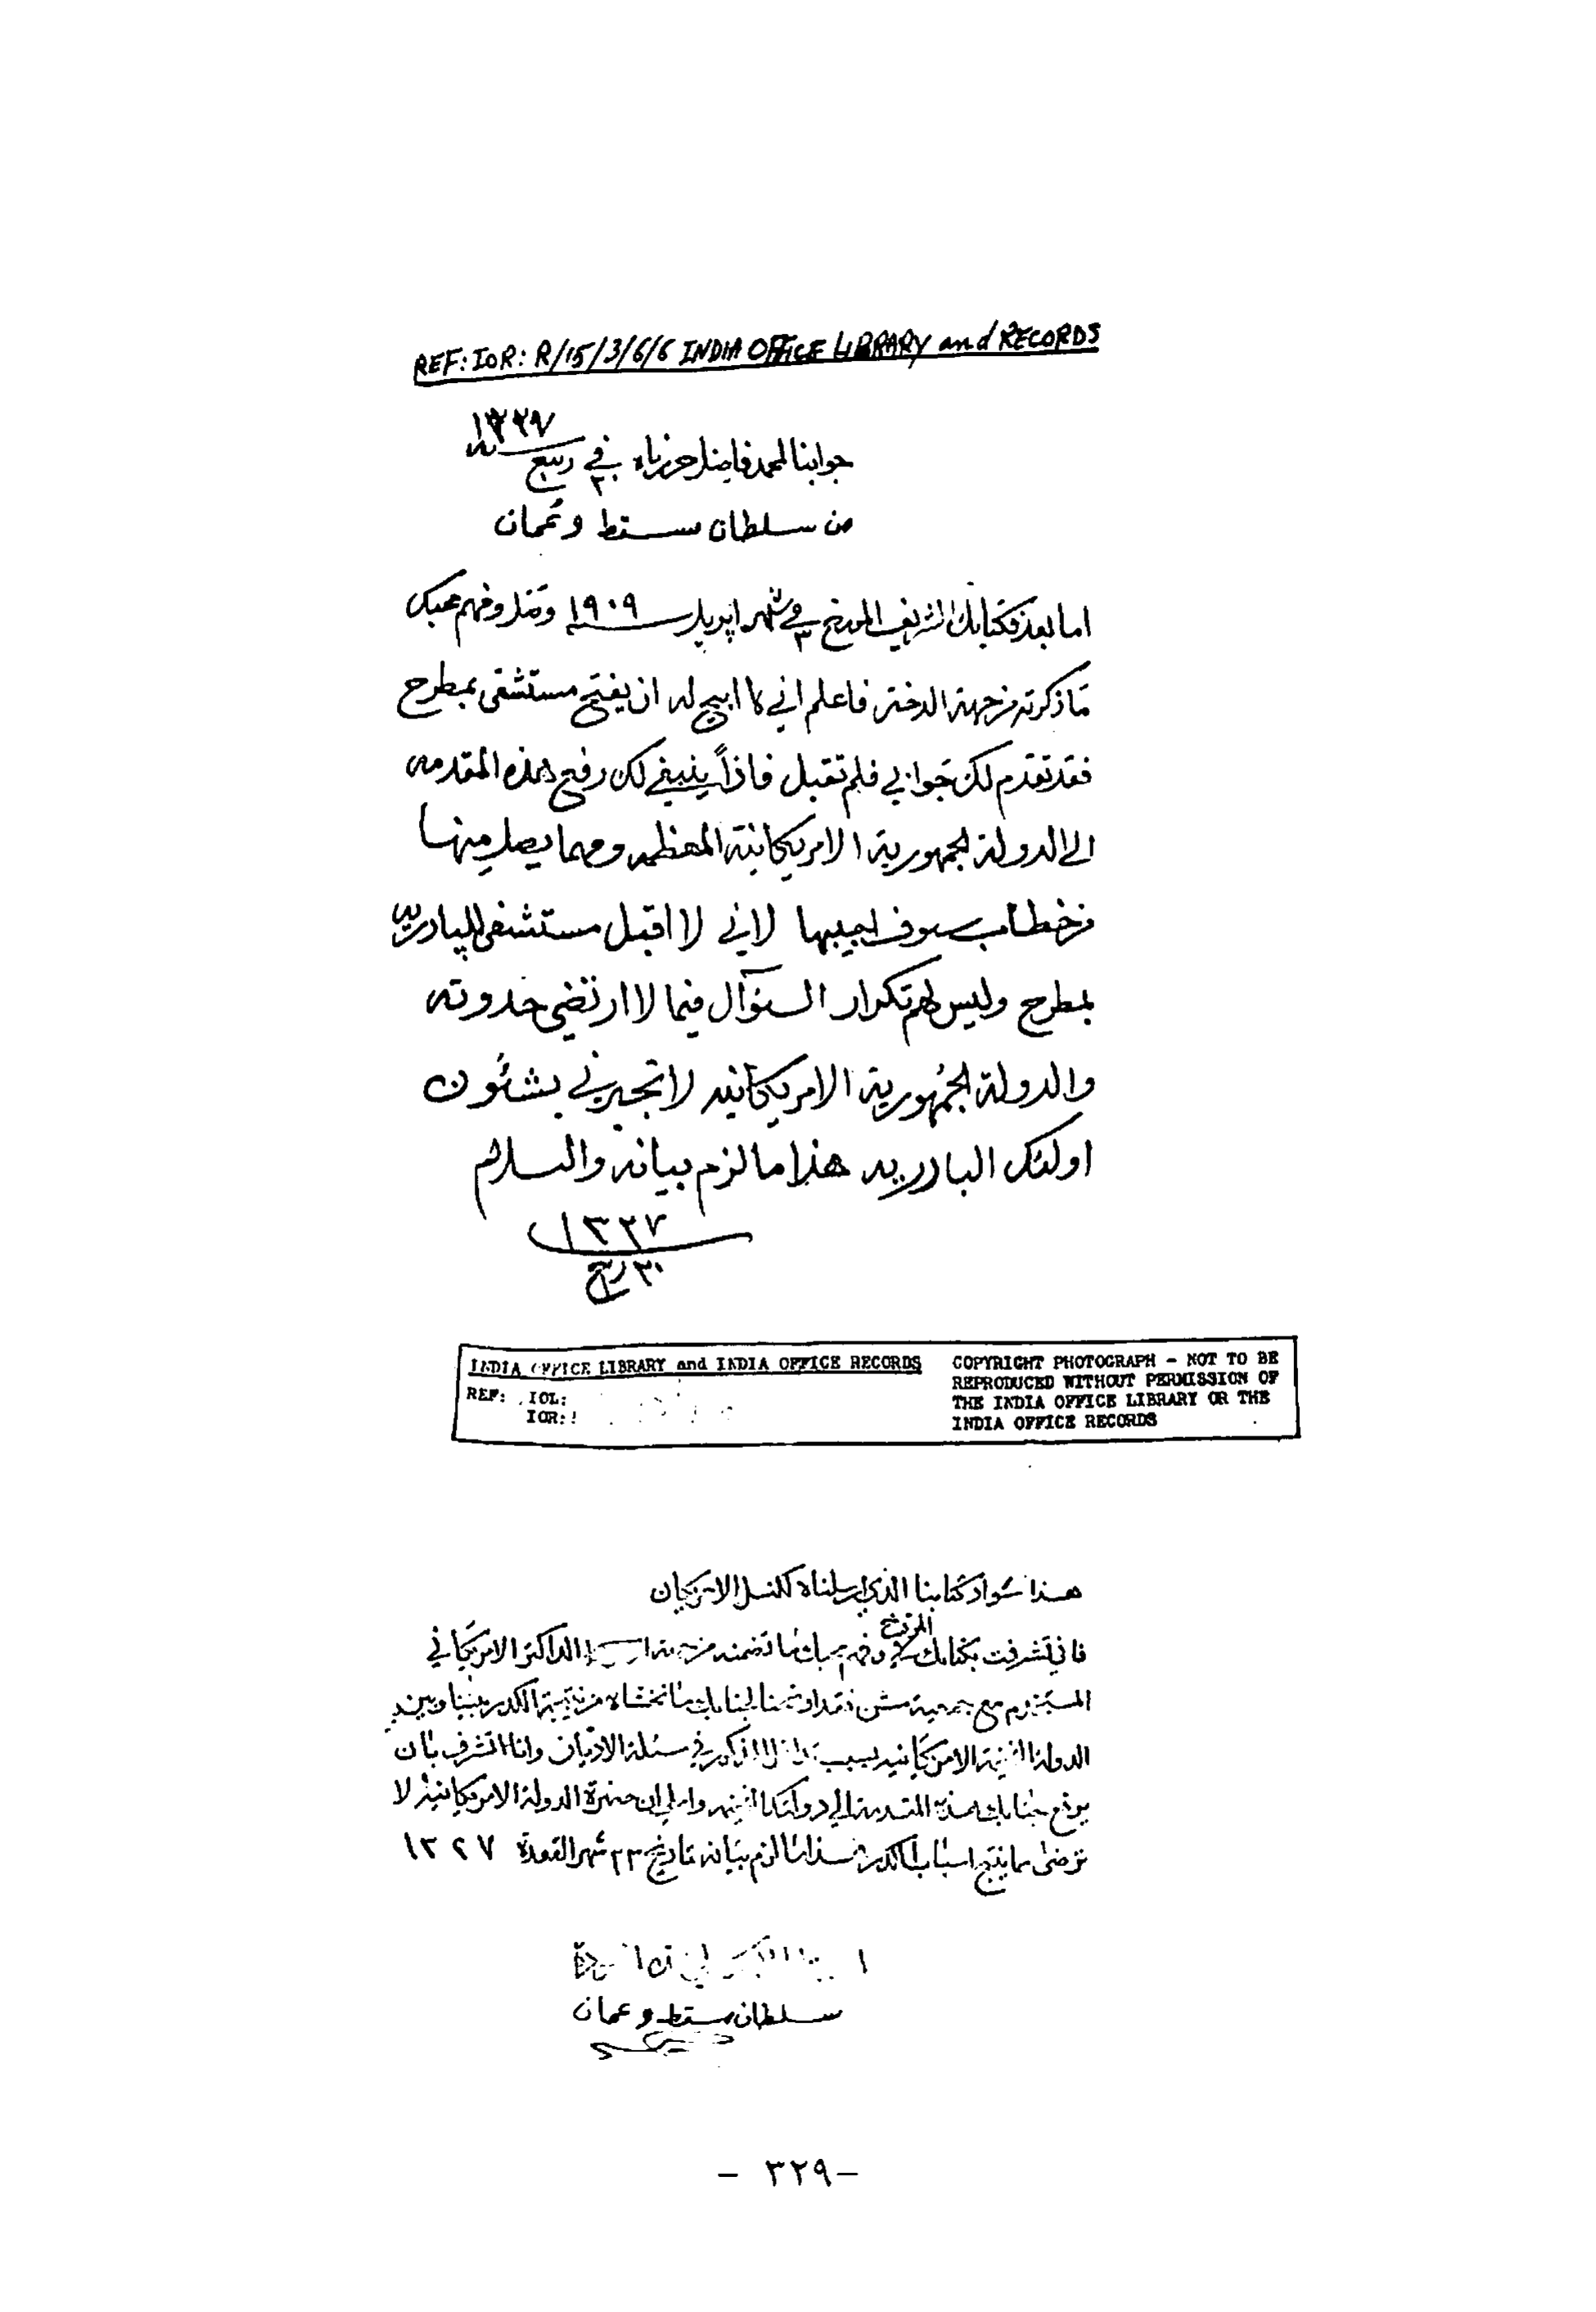 REF: IOR: R/15/3/6/6 INDIA OFFICE LIBRARY and RECORDS
١٣٢٧
جوابنا لمحمد فاضل في ربيع
من سلطان مسقط وعُمان
اما بعد فكتابك الشريف المورخ ٣ في شهر اپريل سنة ١٩٠٩ وصل وفهم محبك
ما ذكرته من جهة الدختر فاعلم اني لا ابيح له ان يفتح مستشفى بمطرح
فقد تقدم لك جوابي فلم تقبل فاذاً ينبغي لك رفع هذه المقدمه
الى الدولة الجمهورية الامريكانية المعظمه ومهما يصل منها
من خطاب سوف اجيبها لاني لا اقبل مستشفى للپادريه
بمطرح وليس لهم تكرار السؤآل فيما لا ارتضي حدوثه
والدولة الجمُهورية الامريكانيه لا تجبرني بشئون
اولئك البادريه هذا ما لزم بيانه والسلام
١٣٢٧
٣٠ ربيع
INDIA OFFICE LIBRARY and INDIA OFFICE RECORDS
REF: IOL:
IOR:
COPYRIGHT PHOTOGRAPH - NOT TO BE
REPRODUCED WITHOUT PERMISSION OF
THE INDIA OFFICE LIBRARY OR THE
INDIA OFFICE RECORDS
هذا سواد كتابنا الذي ارسلناه لكنسل الامريكان
المورخ
فاني تشرفت بكتابك وفهم محبك ما تضمنه من جهة الداكتر الامريكاني
المستخدم مع جمعية مشن فقد اوضحنا لجنابك ما نخشاه من نتيجة الكدر بيننا وبين
الدولة الفخيمة الامريكانيه بسبب المذكور في مسئلة الاديان وانا اتشرف بان
يرفع جنابك هذه المقدمة الى دولتك الفخيمه واملي ان حضرة الدولة الامريكانيه لا
ترضى بما ينتج اسباب الكدر هذا ما لزم بيانه تاريخ ٢٣ شهر القعدة ١٣٢٧
سلطان مسقط وعمان
- ٣٢٩ -